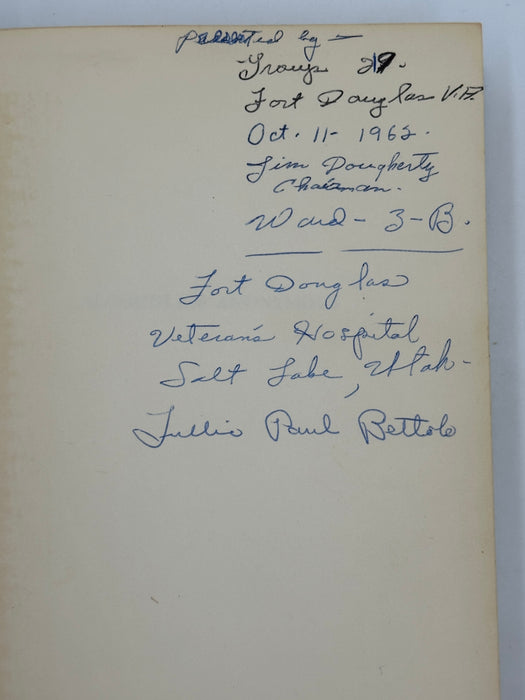 Presented by —
Group 219.
Fort Douglas V.H.
Oct. 11 - 1962.
Jim Dougherty
Chairman.
Ward - 3-B.
Fort Douglas
Veteran's Hospital
Salt Lake, Utah -
Tullio Paul Bettolo